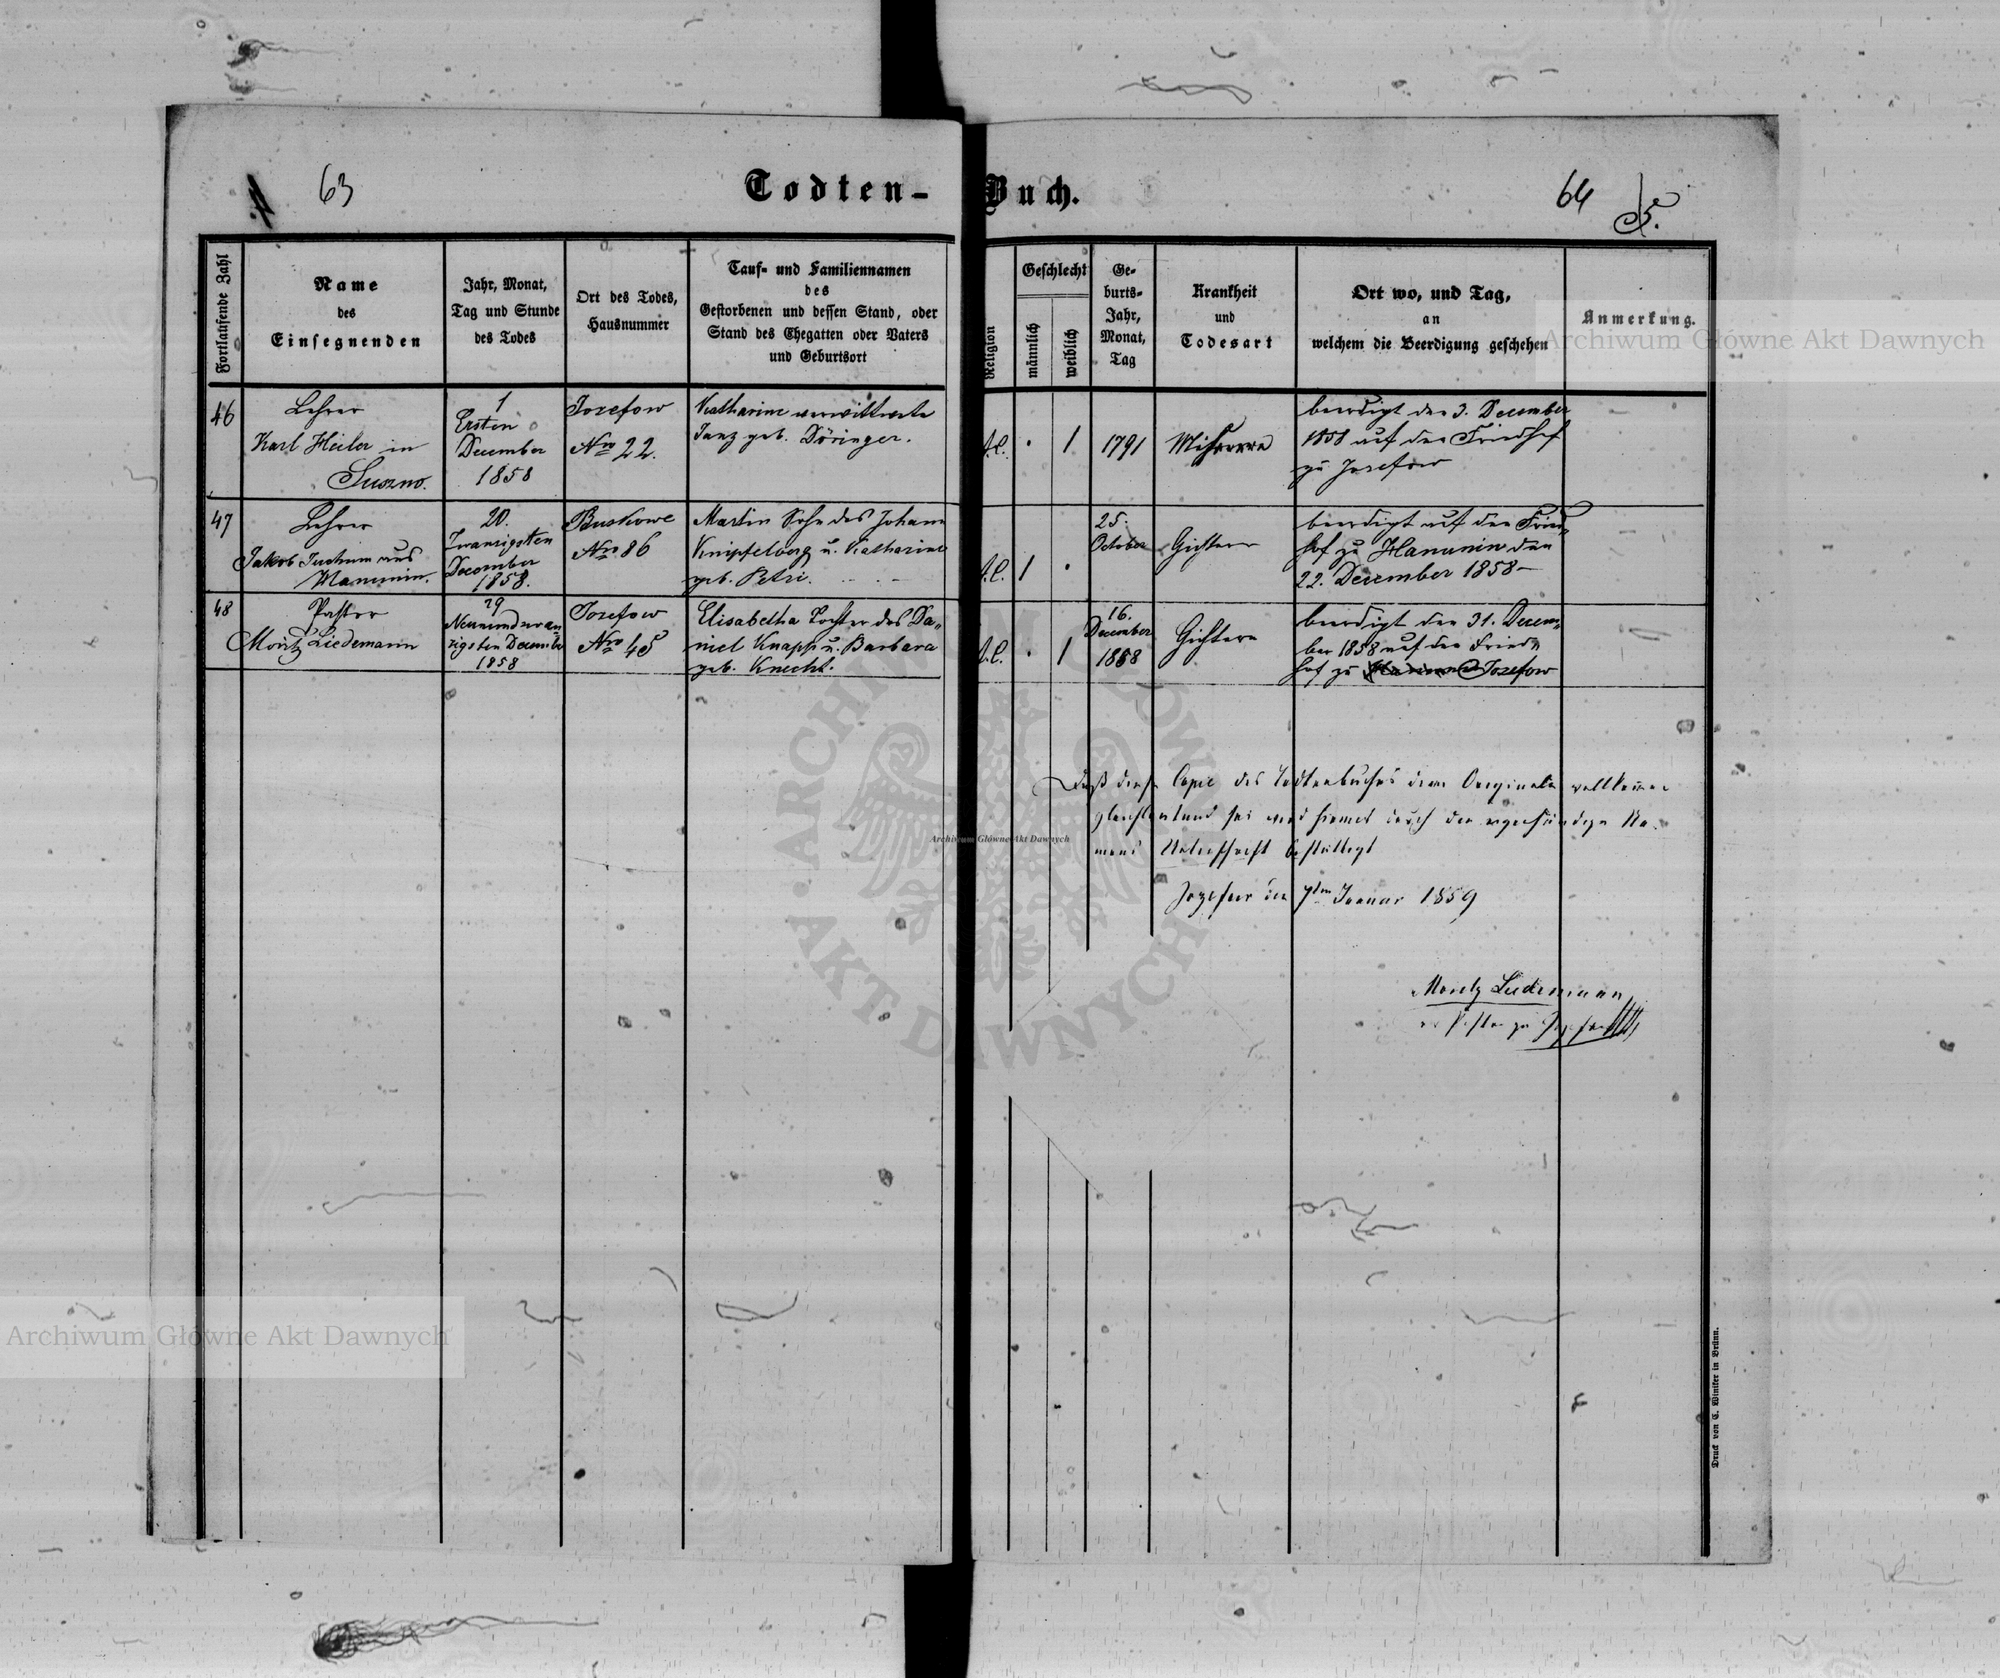 63
Todten-Buch.
64
Fortlaufende Zahl
Name
des
Einsegnenden
Jahr, Monat,
Tag und Stunde
des Todes
Ort des Todes,
Hausnummer
Tauf- und Familiennamen
des
Gestorbenen und dessen Stand, oder
Stand des Ehegatten oder Vaters
und Geburtsort
Religion
Geschlecht
männlich
weiblich
Ge-
burts-
Jahr,
Monat,
Tag
Krankheit
und
Todesart
Ort wo, und Tag,
an
welchem die Beerdigung geschehen
Anmerkung.
46
Lehrer
Karl Heiler in
Suszno.
1
Ersten
December
1858
Josefow
Nro 22.
Katharine verwittwete
Janz geb. Döringer.
A.C.
1
1791
beerdigt den 3. December
1858 auf den Friedhof
zu Josefow
47
Lehrer
Jakob aus
Hanunin.
20.
Zwanzigsten
December
1858.
Nro 86
Martin Sohn des Johann
Knipfelberg u. Katharine
geb. Petri.
A.C.
1
25.
October
Gichtern
beerdigt auf den Fried=
hof zu Hanunin den
22. December 1858
48
Pastor
Moritz Liedemann
29
Neunundzwan
zigsten December
1858
Josefow
Nro 45
Elisabetha Tochter des Da=
niel Knapp u. Barbara
geb. Knecht.
A.C.
1
16.
December
1858
Gichtern
beerdigt den 31. Decem=
ber 1858 auf den Fried=
hof zu Josefow
Daß diese Copie des Todtenbuches dem Originale vollkommen
gleichlautend sei wird hiemit durch die eigenhändige Na-
mens Unterschrift bestättigt
Jozefow den 7ten Januar 1859
Moritz Liedemann
Druck von C. Winiker in Brünn.
Archiwum Główne Akt Dawnych
Archiwum Główne Akt Dawnych
Archiwum Główne Akt Dawnych
ARCHIWUM GŁÓWNE AKT DAWNYCH